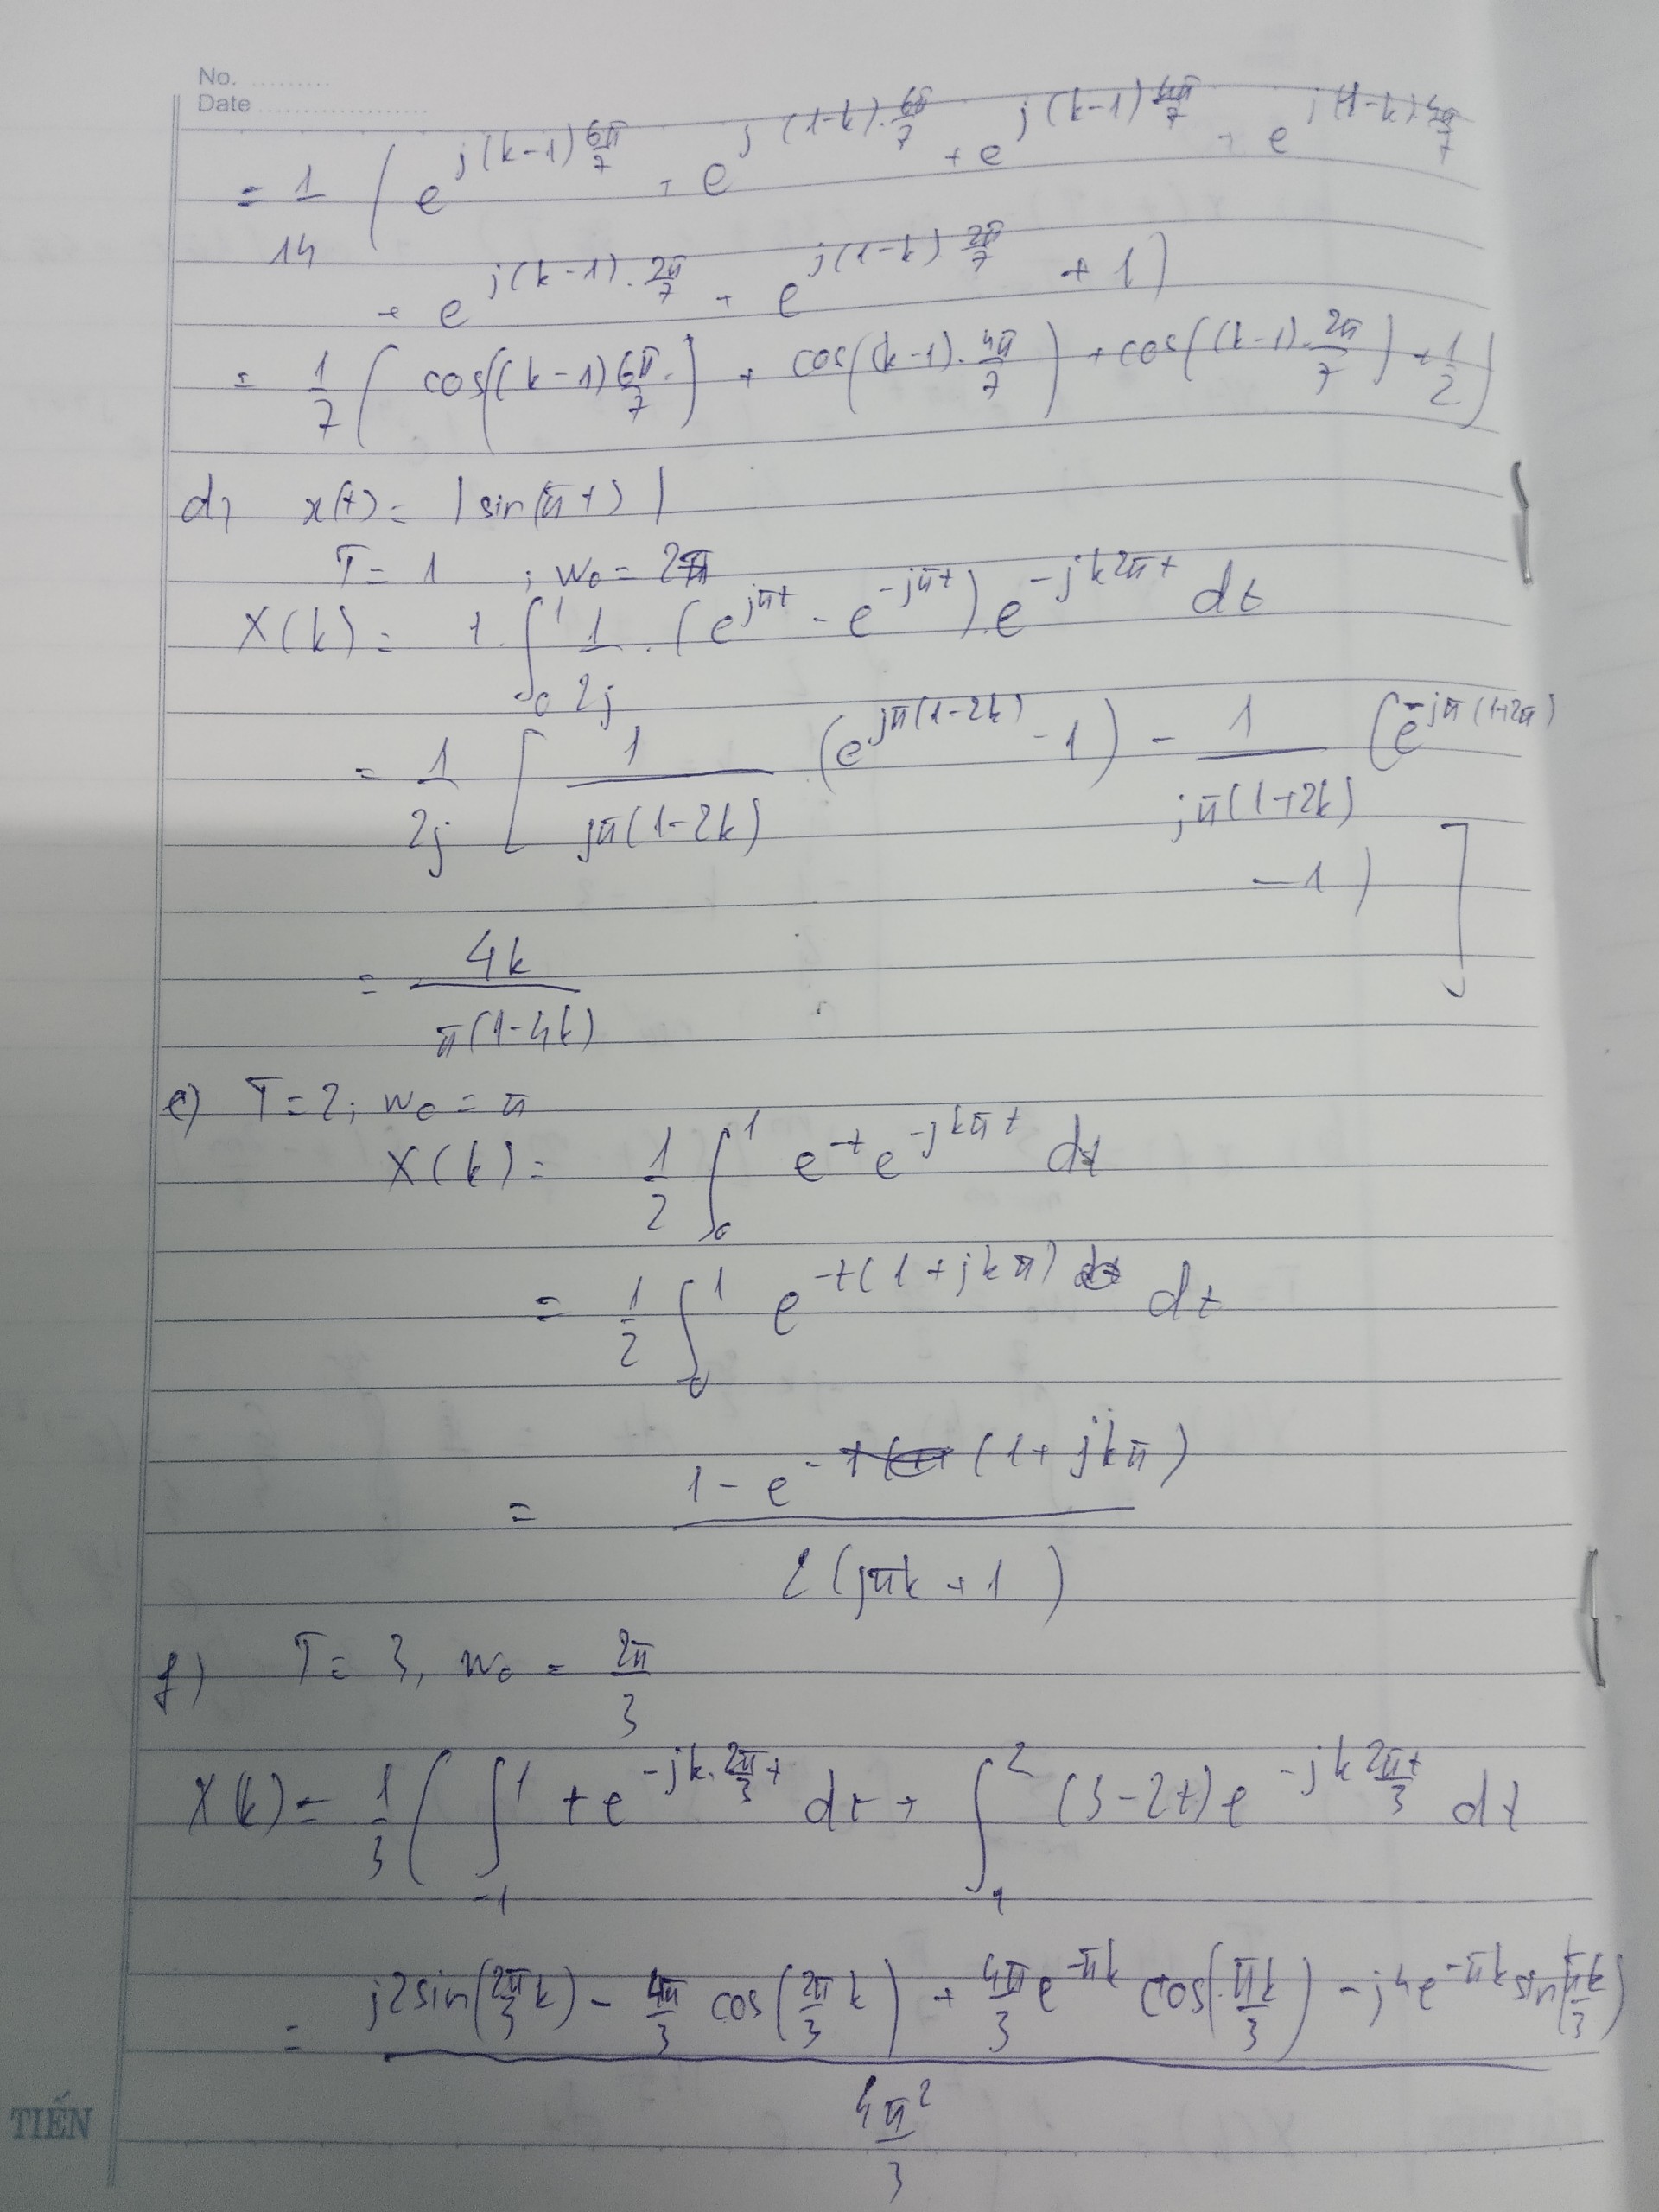 No. ..........
Date ....................
= 1/14 ( e^{j(k-1) 6π/7} + e^{j(1-k). 6π/7} + e^{j(k-1) 4π/7} + e^{j(1-k) 4π/7}
+ e^{j(k-1). 2π/7} + e^{j(1-k) 2π/7} + 1 )
= 1/7 ( cos((k-1) 6π/7) + cos((k-1). 4π/7) + cos((k-1). 2π/7) + 1/2 )
d) x(t) = |sin(πt)|
T = 1 ; w₀ = 2π
X(k) = 1. ∫₀¹ 1/2j . (e^{jπt} - e^{-jπt}). e^{-jk2πt} dt
= 1/2j [ 1/jπ(1-2k) (e^{jπ(1-2k)} - 1) - 1/jπ(1+2k) (e^{-jπ(1+2π)}
- 1) ]
= 4k/π(1-4k)
e) T = 2; w₀ = π
X(k) = 1/2 ∫₀¹ e^{-t} e^{-jkπt} dt
= 1/2 ∫₀¹ e^{-t(1+jkπ)} dt
= 1 - e^{-(1+jkπ)} / 2(jπk + 1)
f) T = 3, w₀ = 2π/3
X(k) = 1/3 ( ∫₋₁¹ t e^{-jk. 2π/3 t} dt + ∫₁² (3-2t) e^{-jk 2πt/3} dt
= j2sin(2π/3 k) - 4π/3 cos(2π/3 k) + 4π/3 e^{-πk} cos(πk/3) - j4e^{-πk} sin(πk/3) / 4π²/3
TIẾN